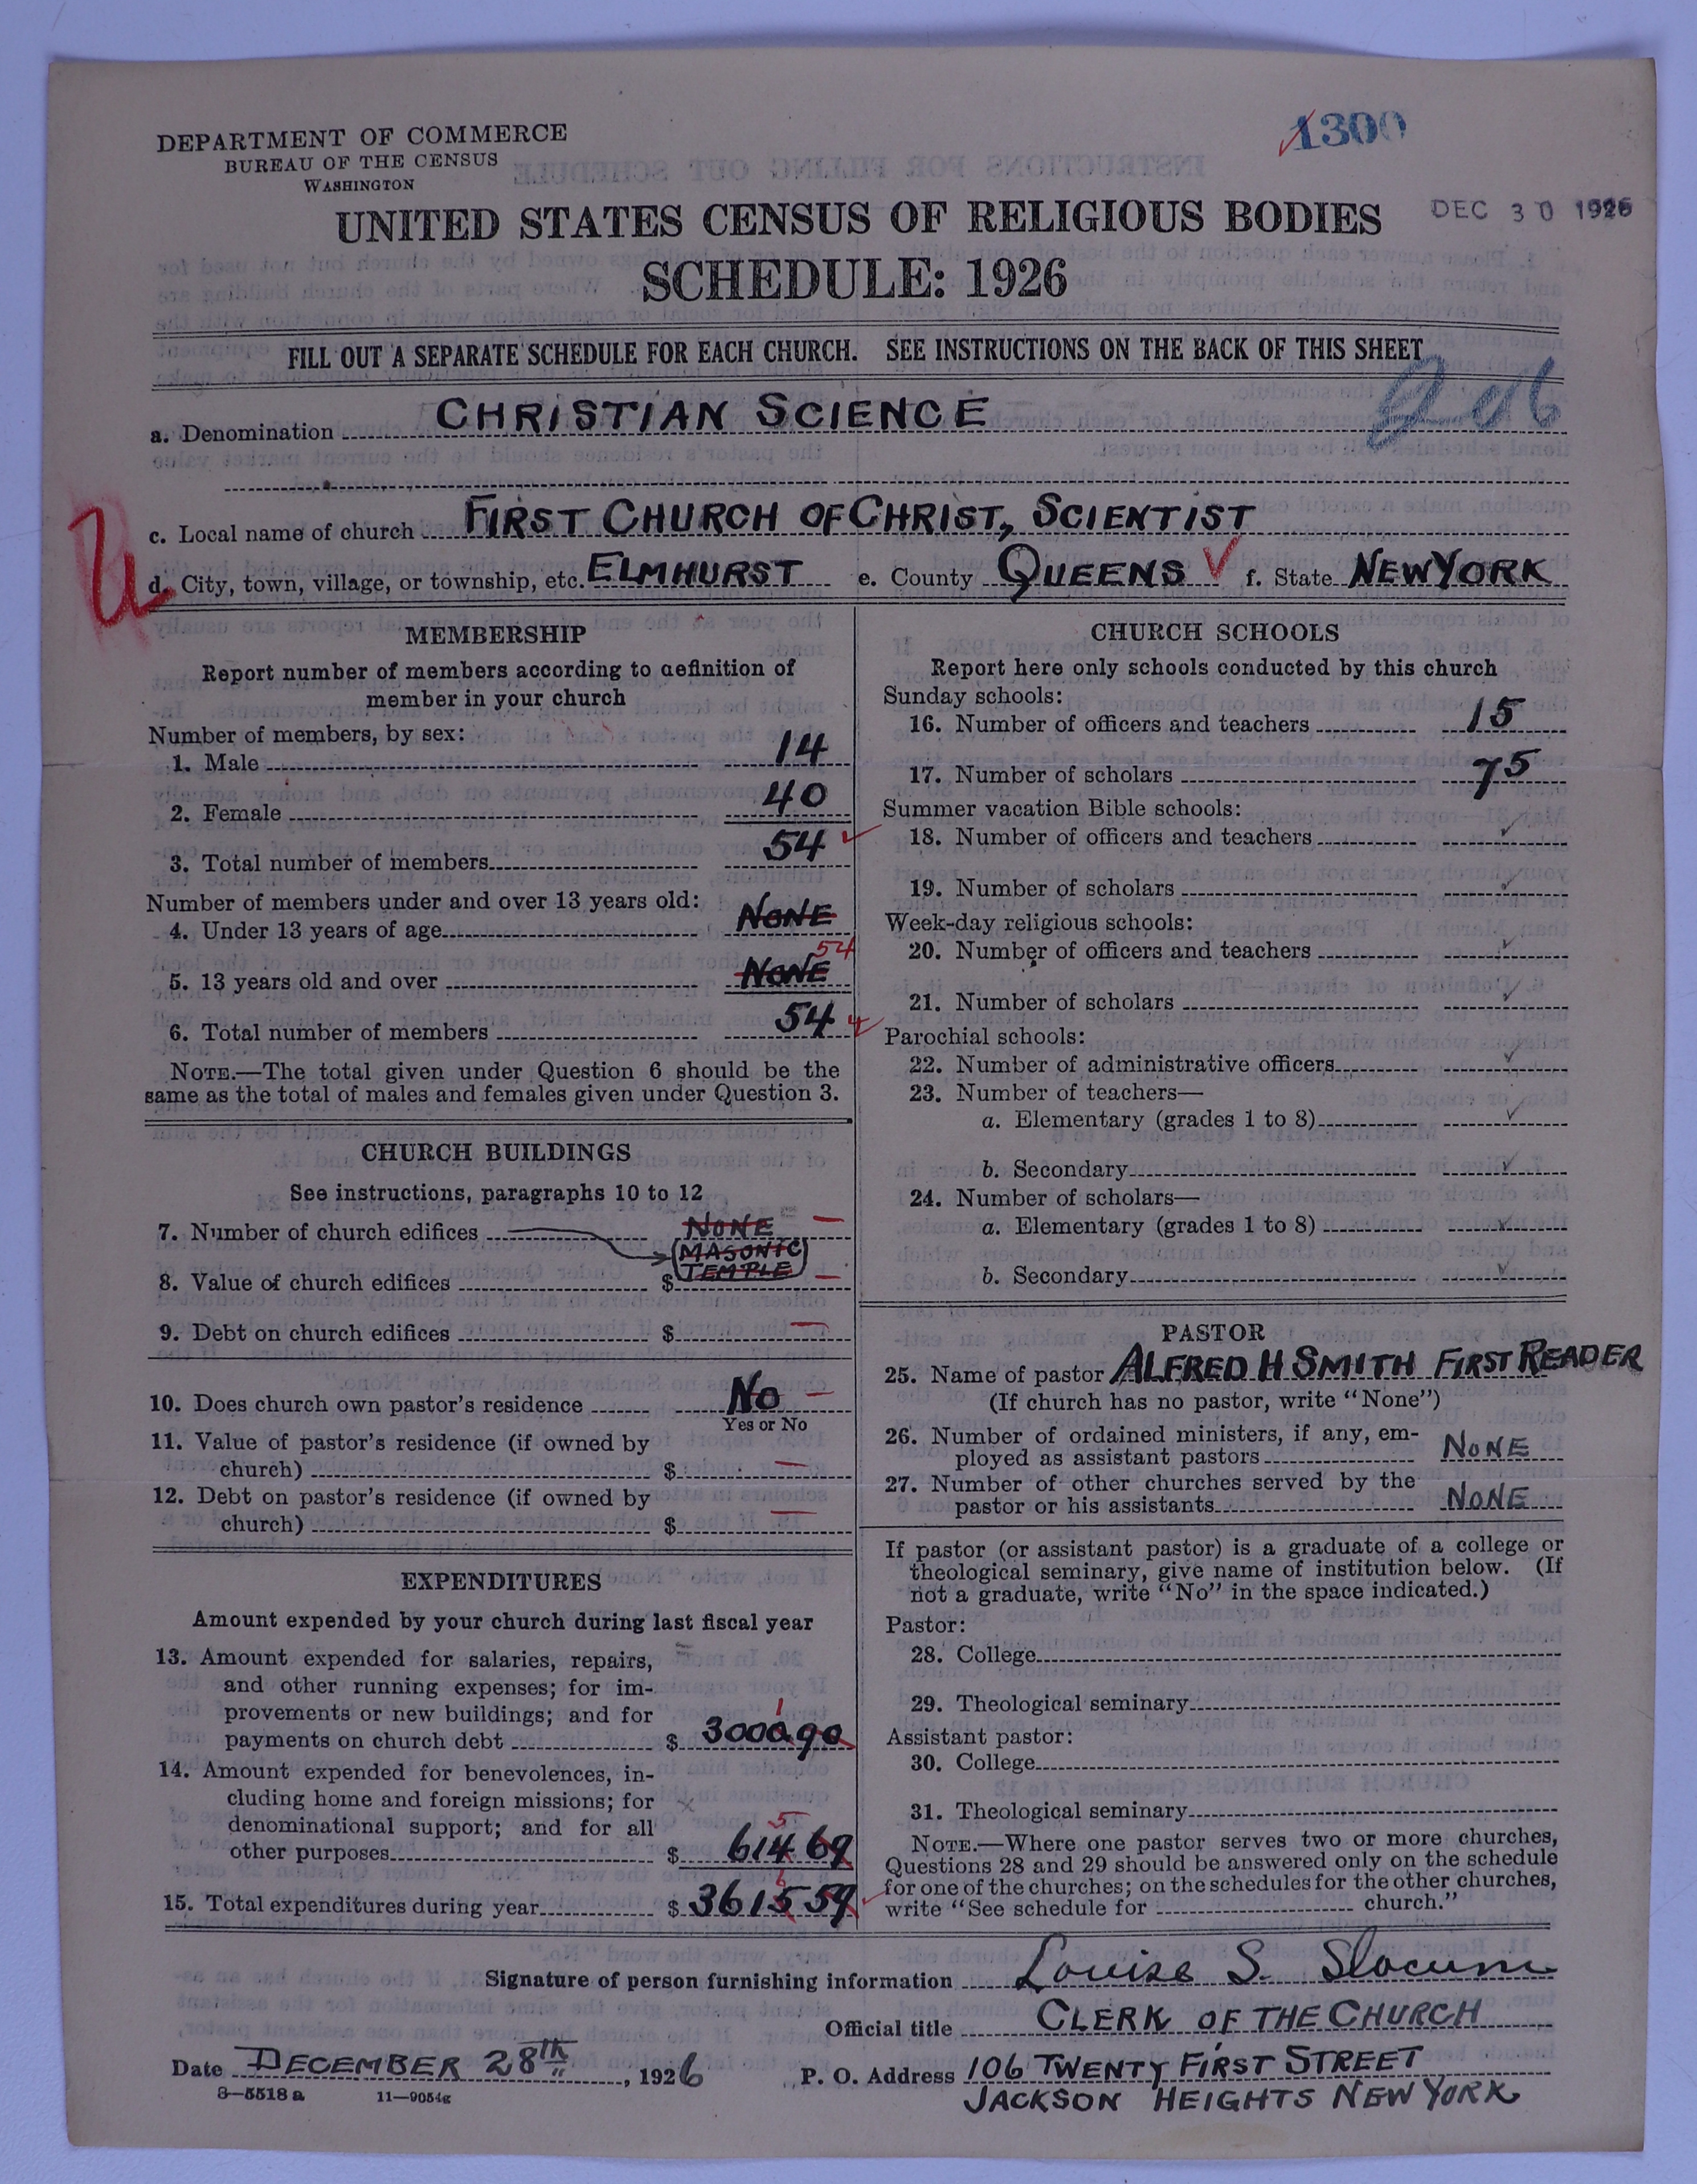 1300
DEPARTMENT OF COMMERCE
BUREAU OF THE CENSUS
WASHINGTON
UNITED STATES CENSUS OF RELIGIOUS BODIES
DEC 30 1926
SCHEDULE: 1926
FILL OUT A SEPARATE SCHEDULE FOR EACH CHURCH. SEE INSTRUCTIONS ON THE BACK OF THIS SHEET
a. Denomination CHRISTIAN SCIENCE
c. Local name of church FIRST CHURCH OF CHRIST, SCIENTIST
d. City, town, village, or township, etc. ELMHURST e. County QUEENS f. State NEW YORK
MEMBERSHIP
Report number of members according to definition of
member in your church
Number of members, by sex:
1. Male 14
2. Female 40
3. Total number of members 54
Number of members under and over 13 years old:
4. Under 13 years of age NONE
54
5. 13 years old and over NONE
6. Total number of members 54
NOTE.—The total given under Question 6 should be the
same as the total of males and females given under Question 3.
CHURCH BUILDINGS
See instructions, paragraphs 10 to 12
7. Number of church edifices NONE
MASONIC
TEMPLE
8. Value of church edifices $
9. Debt on church edifices $
10. Does church own pastor's residence No
Yes or No
11. Value of pastor's residence (if owned by
church) $
12. Debt on pastor's residence (if owned by
church) $
EXPENDITURES
Amount expended by your church during last fiscal year
13. Amount expended for salaries, repairs,
and other running expenses; for im-
provements or new buildings; and for
1
payments on church debt $ 3000.90
14. Amount expended for benevolences, in-
cluding home and foreign missions; for
denominational support; and for all
5
other purposes $ 614 69
6
15. Total expenditures during year $ 3615 59
CHURCH SCHOOLS
Report here only schools conducted by this church
Sunday schools:
16. Number of officers and teachers 15
17. Number of scholars 75
Summer vacation Bible schools:
18. Number of officers and teachers
19. Number of scholars
Week-day religious schools:
20. Number of officers and teachers
21. Number of scholars
Parochial schools:
22. Number of administrative officers
23. Number of teachers—
a. Elementary (grades 1 to 8)
b. Secondary
24. Number of scholars—
a. Elementary (grades 1 to 8)
b. Secondary
PASTOR
25. Name of pastor ALFRED H SMITH FIRST READER
(If church has no pastor, write "None")
26. Number of ordained ministers, if any, em-
ployed as assistant pastors NONE
27. Number of other churches served by the
pastor or his assistants NONE
If pastor (or assistant pastor) is a graduate of a college or
theological seminary, give name of institution below. (If
not a graduate, write "No" in the space indicated.)
Pastor:
28. College
29. Theological seminary
Assistant pastor:
30. College
31. Theological seminary
NOTE.—Where one pastor serves two or more churches,
Questions 28 and 29 should be answered only on the schedule
for one of the churches; on the schedules for the other churches,
write "See schedule for church."
Signature of person furnishing information Louise S. Slocum
Official title CLERK OF THE CHURCH
Date DECEMBER 28th, 1926 P. O. Address 106 TWENTY FIRST STREET
JACKSON HEIGHTS NEW YORK
8—5518a 11—9054g